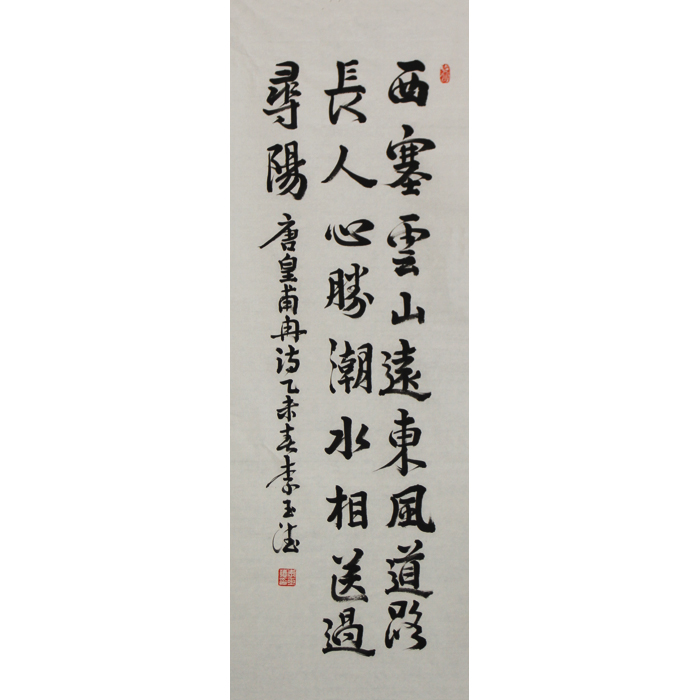 西塞雲山遠東風道路
長人心勝潮水相送過
尋陽
唐皇甫冉诗乙未春李玉德